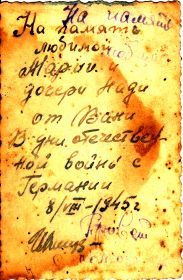 На памят
На память
любимой
Марии и
дочери Нади
от Вани
В дни отечествен
ной войны с
Германии
8/VIII-1945 г